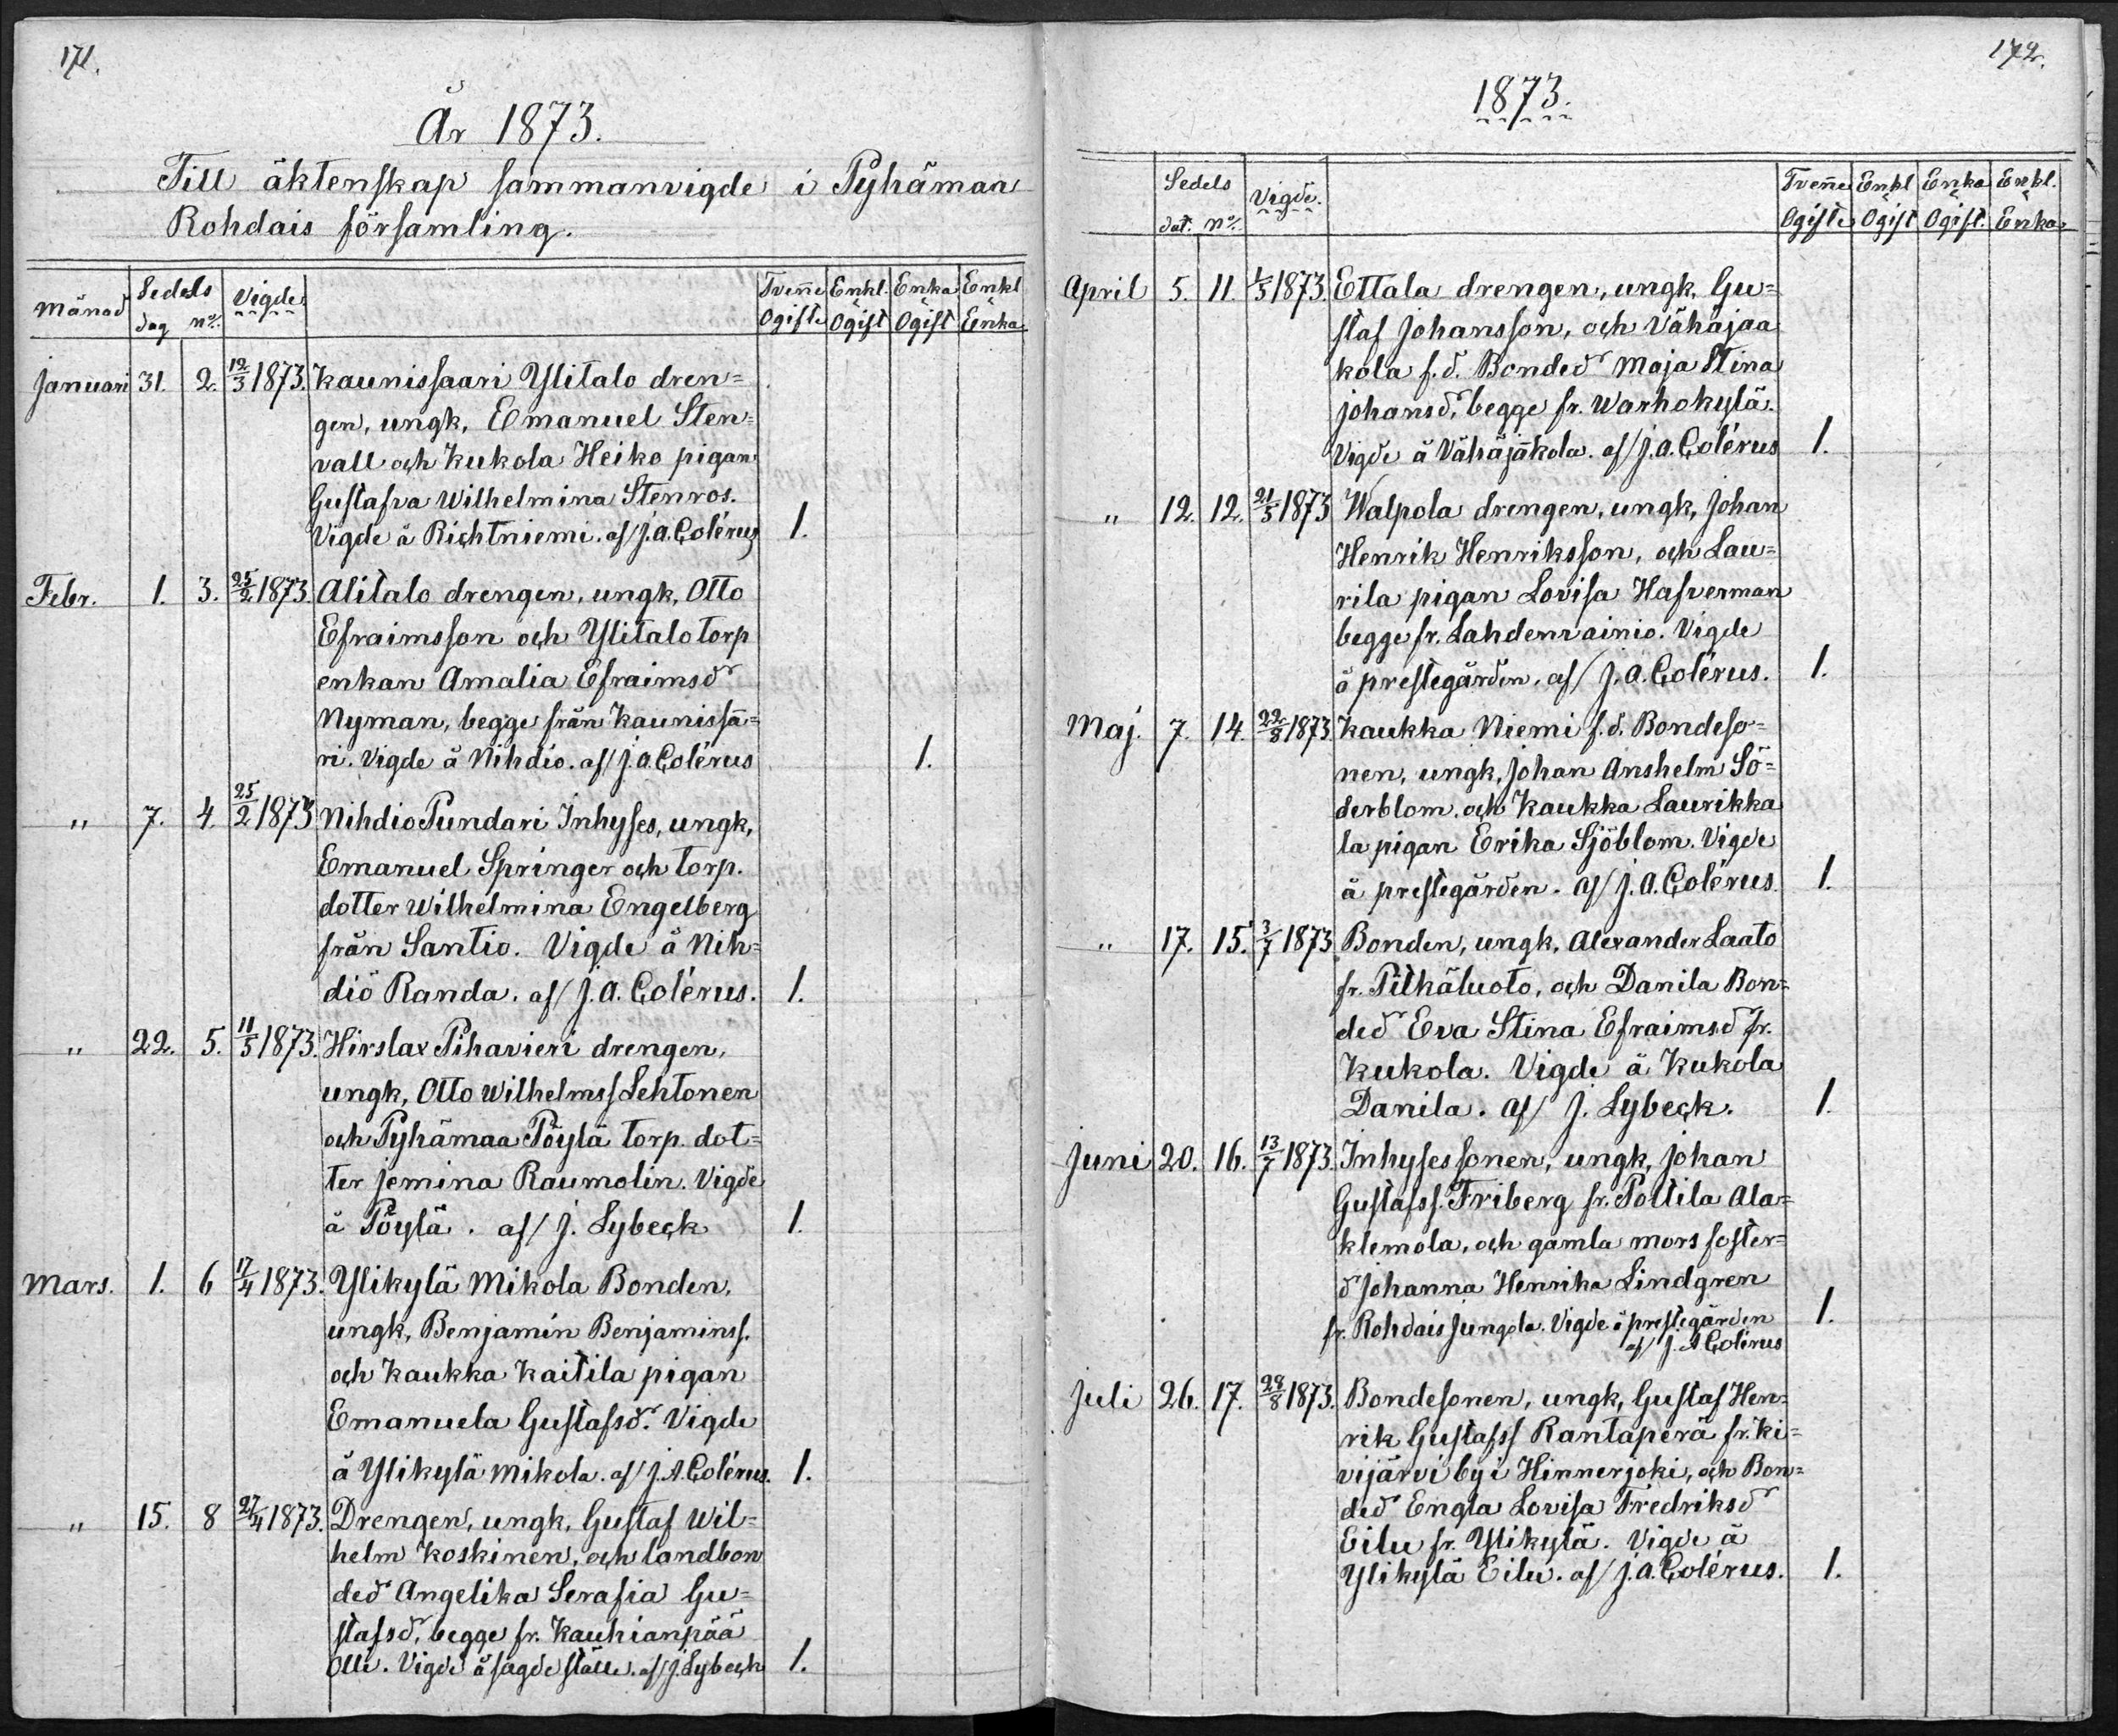 171.
År 1873.
Till äktenskap sammanvigde i Pyhämaa
Rohdais församling.
Månad Sedels Vigde Tvenne Enkl. Enka Enkl
dag No. Ogifte Ogift Ogift Enka
Januari 31. 2. 12/3 1873. Kaunissaari Ylitalo dren=
gen, ungk, Emanuel Sten=
vall och Kukola Heiko pigan
Gustafva Wilhelmina Stenros.
Vigde å Richtniemi. af/ J.A. Colérus 1.
Febr. 1. 3. 25/2 1873. Alitalo drengen, ungk, Otto
Efraimsson och Ylitalo torp
enkan Amalia Efraimsd
Nyman, begge från Kaunissa=
ri. Vigde å Nihdio. af/ J.A. Colérus 1.
" 7. 4. 25/2 1873 Nihdio Pundari Inhyses, ungk,
Emanuel Springer och torp.
dotter Wilhelmina Engelberg
från Santio. Vigde å Nih=
diö Randa. af/ J.A. Colérus. 1.
" 22. 5. 11/5 1873. Hirslax Pihavieri drengen,
ungk, Otto Wilhelmss Lehtonen
och Pyhämaa Pöylä torp. dot=
ter Jemina Raumolin. Vigde
å Pöylä. af/ J. Lybeck 1.
Mars. 1. 6 17/4 1873. Ylikylä Mikola Bonden,
ungk, Benjamin Benjaminss.
och Kaukka Kaitila pigan
Emanuela Gustafsd. Vigde
å Ylikylä Mikola. af/ J.A. Colérus. 1.
" 15. 8 27/4 1873. Drengen, ungk, Gustaf Wil=
helm Koskinen, och landbon
ded Angelika Serafia Gu=
stafsd, begge fr. Kauhianpää
Olli. Vigde å sagde ställe. af/ J. Lybeck 1.
172.
1873.
Sedels Vigde. Tvenne Enkl Enka Enkl.
dat. No. Ogifte Ogift Ogift. Enka
April 5. 11. 1/5 1873. Ettala drengen, ungk, Gu=
staf Johansson, och Vähäjaa
kola f.d. Bonded Maja Stina
Johansd, begge fr. Warhokylä.
Vigde å Vähäjäkola. af/ J.A. Colérus 1.
" 12. 12. 21/5 1873 Walpola drengen, ungk, Johan
Henrik Henriksson, och Lau=
rila pigan Lovisa Hafverman
begge fr. Lahdenvainio. Vigde
å prestegården, af/ J.A. Colérus. 1.
Maj. 7. 14. 22/8 1873. Kaukka Niemi f.d. Bondeso=
nen, ungk, Johan Anshelm Sö=
derblom. och Kaukka Laurikka
la pigan Erika Sjöblom. Vigde
å prestegården. af/ J.A. Colérus. 1.
" 17. 15. 3/7 1873 Bonden, ungk, Alexander Laato
fr. Pitkäluoto, och Danila Bon=
ded Eva Stina Efraimsd fr.
Kukola. Vigde å Kukola
Danila. af/ J. Lybeck. 1.
Juni 20. 16. 13/7 1873. Inhyses sonen, ungk, Johan
Gustafss. Friberg fr. Pottila Ala=
klemola, och gamla mors foster=
d Johanna Henrika Lindgren
fr. Rohdais Jungola. Vigde å prestegården 1.
af/ J.A Colérus
Juli 26. 17. 28/8 1873. Bondesonen, ungk, Gustaf Hen=
rik Gustafss Rantaperä fr. Ki=
vijärvi by i Hinnerjoki, och Bon=
ded Engla Lovisa Fredriksd
Eilu fr. Ylikylä. Vigde å
Ylikylä Eilu. af/ J.A. Colérus. 1.